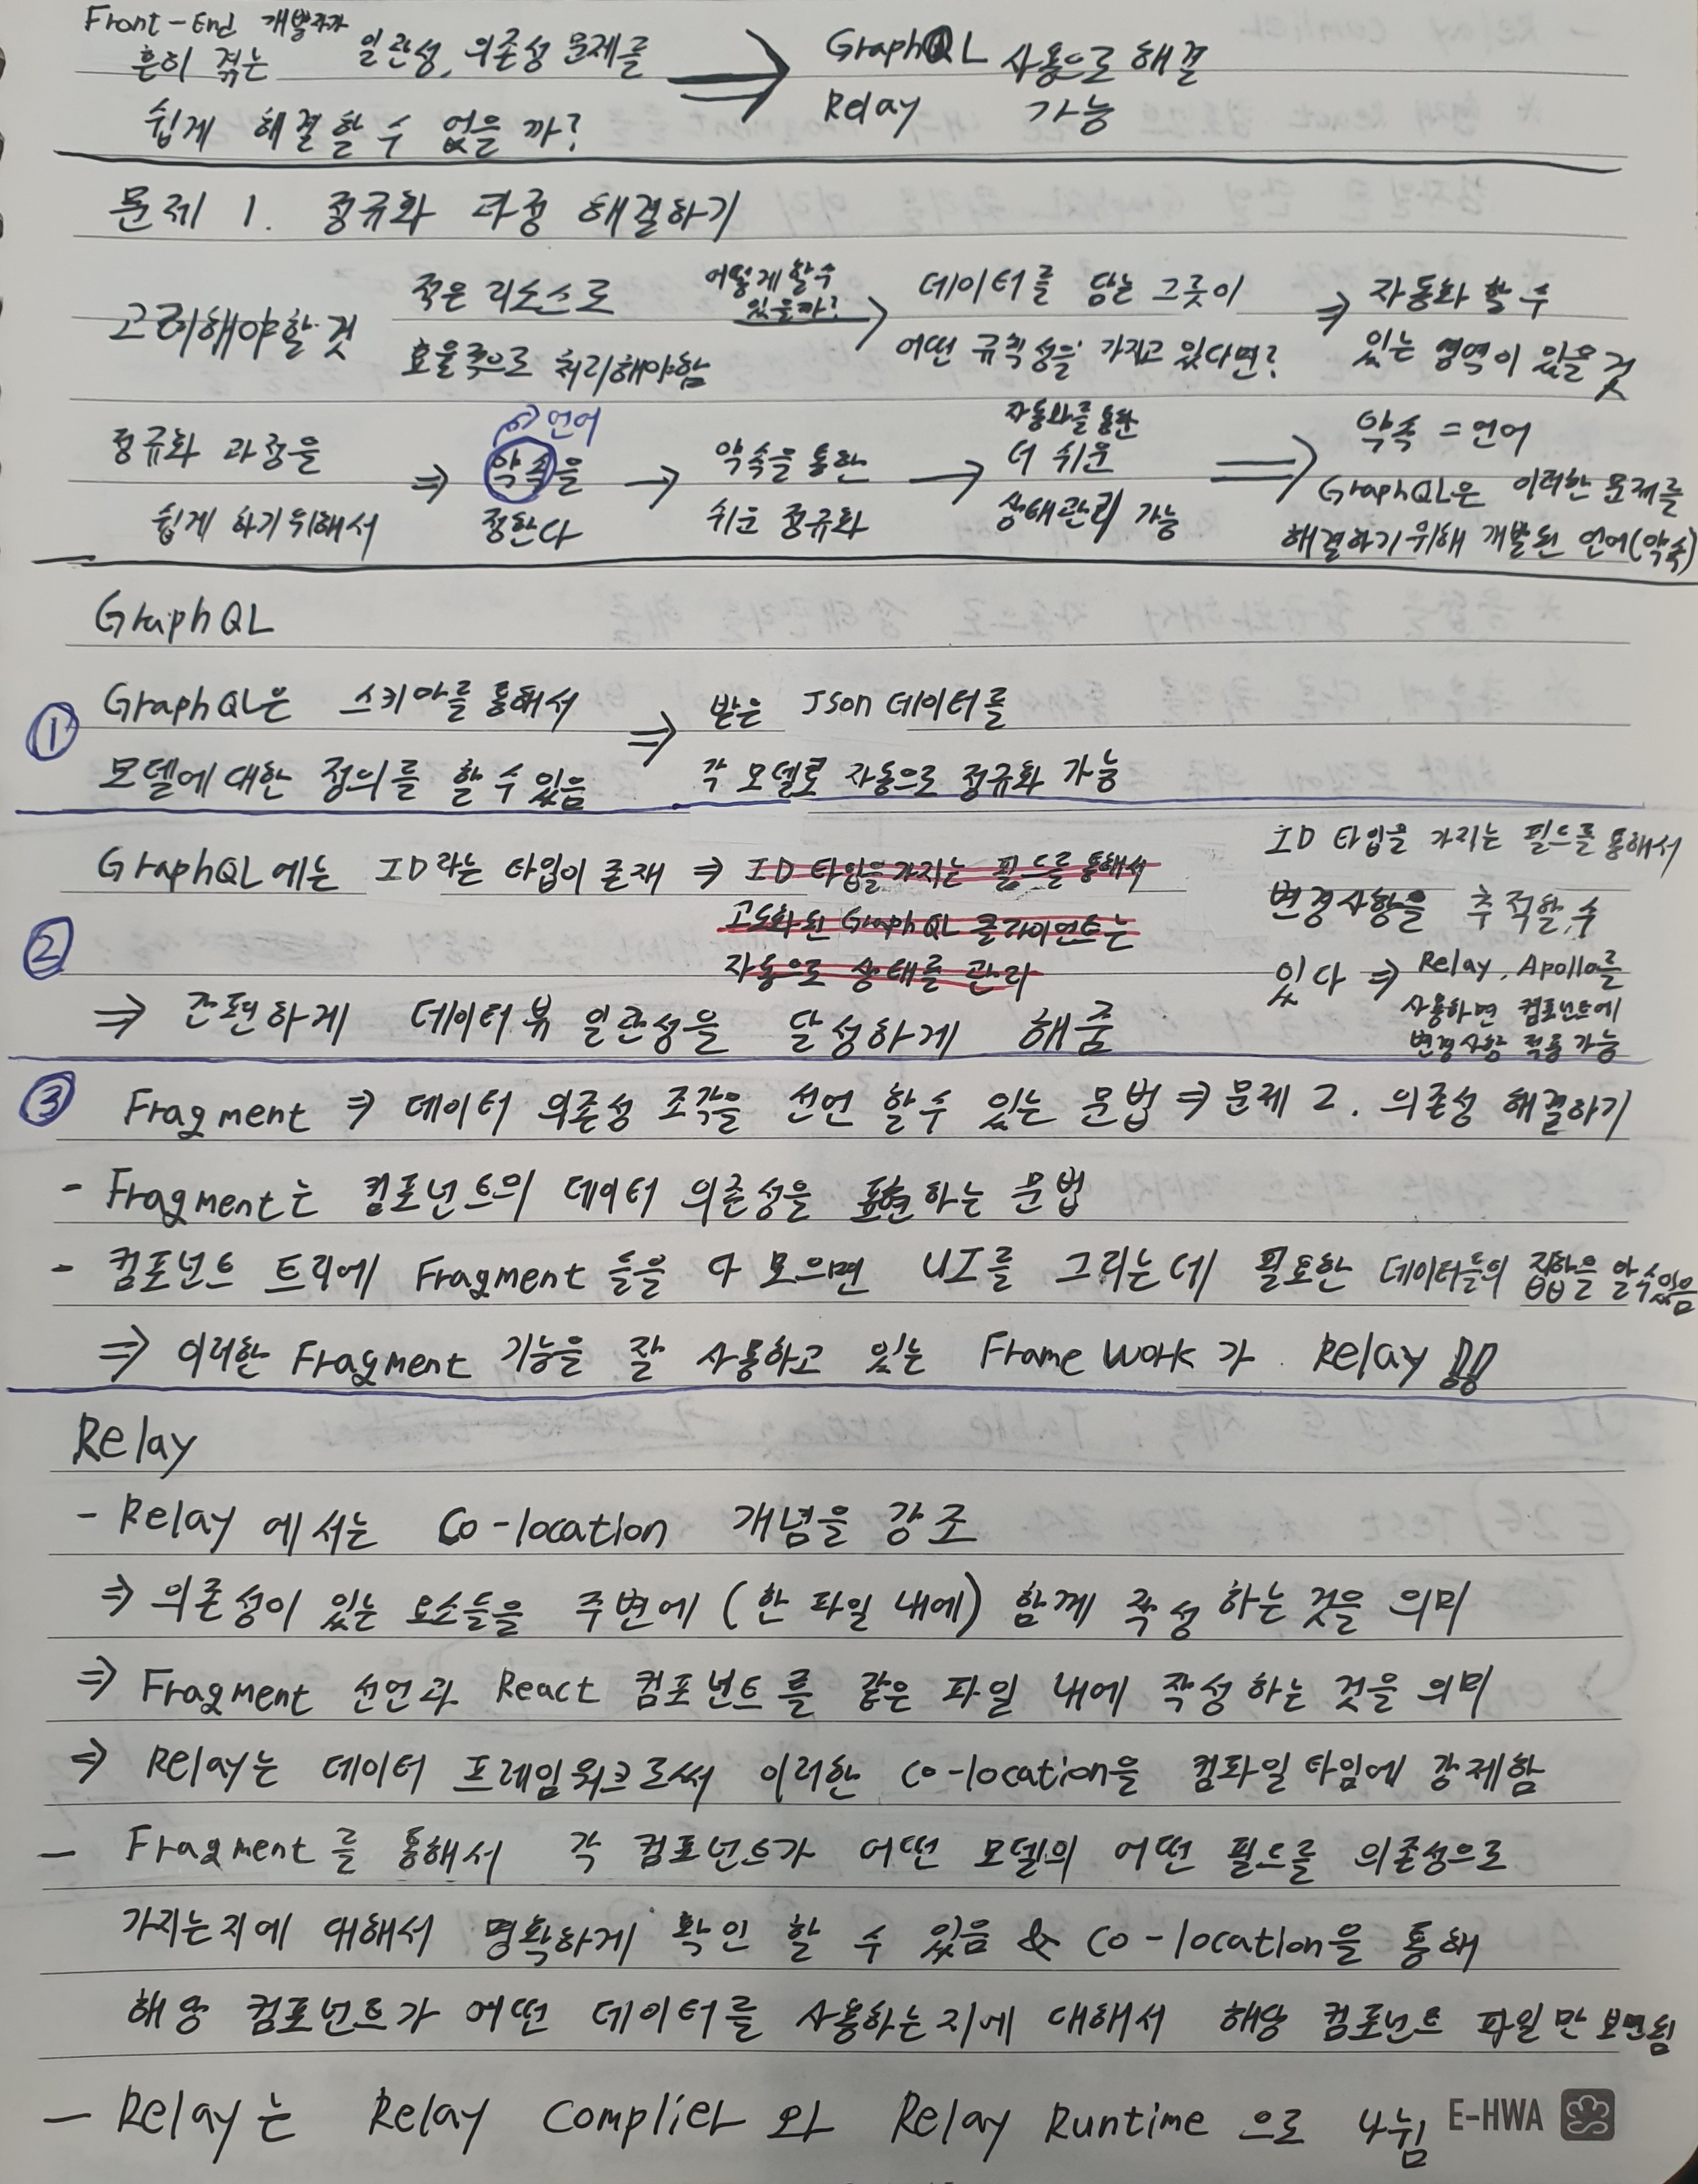 Front-End 개발자가
흔히 겪는 일관성, 의존성 문제를 ⇒ GraphQL 사용으로 해결
쉽게 해결할 수 없을까? Relay 가능
문제 1. 정규화 과정 해결하기
고려해야할 것
적은 리소스로
효율적으로 처리해야함
어떻게 할 수
있을까? →
데이터를 담는 그릇이
어떤 규칙성을 가지고 있다면?
⇒ 자동화 할 수
있는 영역이 있을 것
정규화 과정을
쉽게 하기위해서
⇒ 약속을
정한다
→ 언어
→ 약속을 통한
쉬운 정규화
→ 자동화를 통한
더 쉬운
상태관리 가능
⇒ 약속 = 언어
GraphQL은 이러한 문제를
해결하기 위해 개발된 언어(약속)
GraphQL
① GraphQL은 스키마를 통해서
모델에 대한 정의를 할 수 있음
⇒ 받은 Json 데이터를
각 모델로 자동으로 정규화 가능
② GraphQL에는 ID라는 타입이 존재 ⇒ ID 타입을 가지는 필드를 통해서
고도화된 GraphQL 클라이언트는
자동으로 상태를 관리
ID 타입을 가지는 필드를 통해서
변경사항을 추적할 수
있다 ⇒ Relay, Apollo를
사용하면 컴포넌트에
변경사항 적용 가능
⇒ 간편하게 데이터뷰 일관성을 달성하게 해줌
③ Fragment ⇒ 데이터 의존성 조각을 선언 할 수 있는 문법 ⇒ 문제 2. 의존성 해결하기
- Fragment는 컴포넌트의 데이터 의존성을 표현하는 문법
- 컴포넌트 트리에 Fragment 들을 다 모으면 UI를 그리는데 필요한 데이터들의 집합을 알 수 있음
⇒ 이러한 Fragment 기능을 잘 사용하고 있는 Frame Work가 Relay !!
Relay
- Relay 에서는 Co-location 개념을 강조
⇒ 의존성이 있는 요소들을 주변에 (한 파일 내에) 함께 작성하는 것을 의미
⇒ Fragment 선언과 React 컴포넌트를 같은 파일 내에 작성하는 것을 의미
⇒ Relay는 데이터 프레임워크로써 이러한 Co-location을 컴파일 타임에 강제함
- Fragment를 통해서 각 컴포넌트가 어떤 모델의 어떤 필드를 의존성으로
가지는지에 대해서 명확하게 확인 할 수 있음 & Co-location을 통해
해당 컴포넌트가 어떤 데이터를 사용하는지에 대해서 해당 컴포넌트 파일만 보면됨
- Relay는 Relay Complier와 Relay Runtime 으로 나뉨
E-HWA